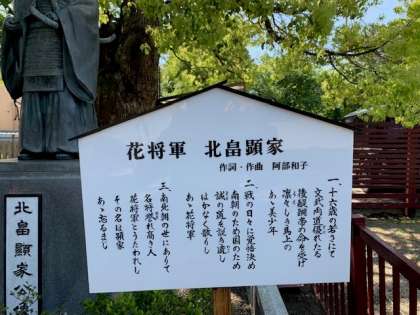 花将軍 北畠顕家
作詞・作曲 阿部和子
一、十六歳の若さにて
文武両道優れたる
後醍醐帝の命を受け
凛々しき馬上の
あゝ美少年
二、戦の日々に覚悟決め
南朝のため国のため
誠の道を説き諭し
はかなく散りし
あゝ花将軍
三、南北朝の世にありて
名将誉れ高き人
花将軍とうたわれし
その名は顕家
あゝ忘るまじ
北畠顕家公像